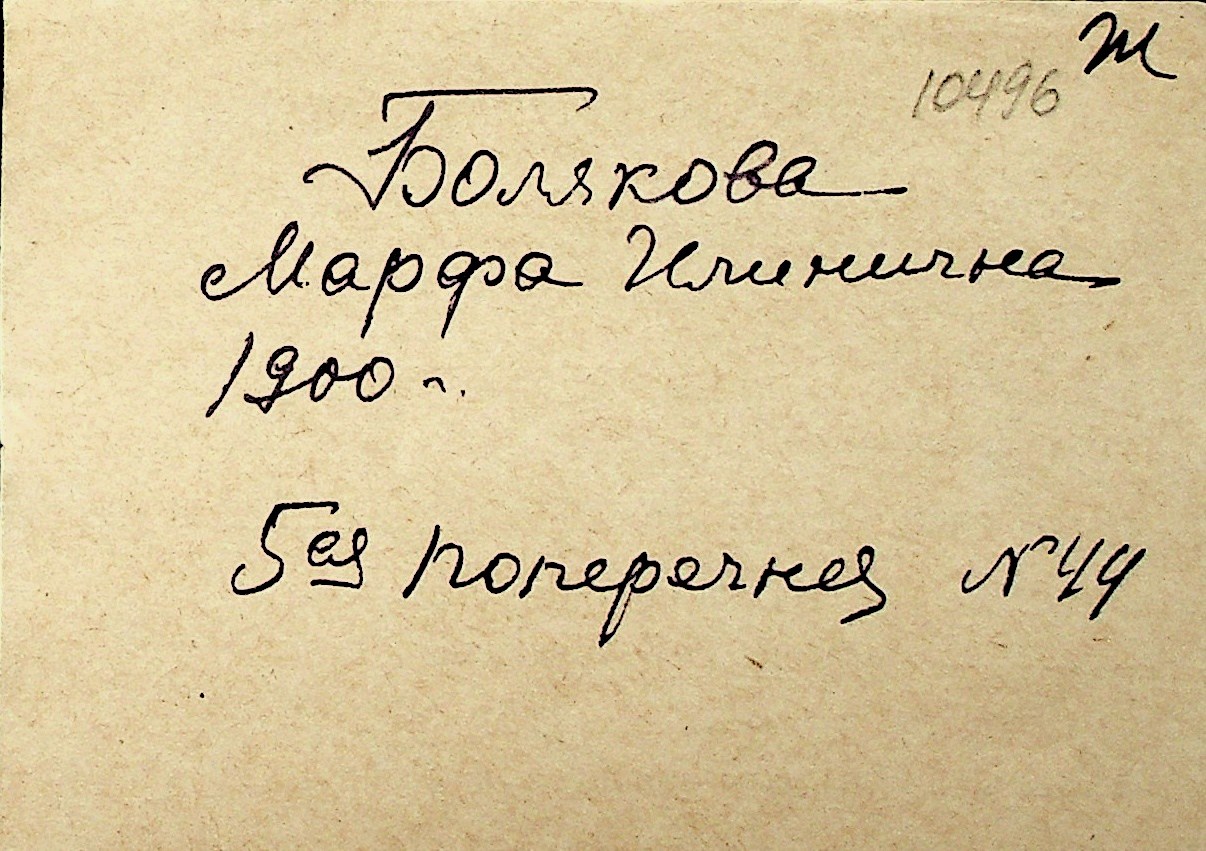 10496 Ж
Болякова
Марфа Илинична
1900 г.
5ая поперечная № 44